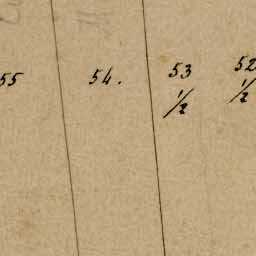 55 54. 53 52
1/2 1/2